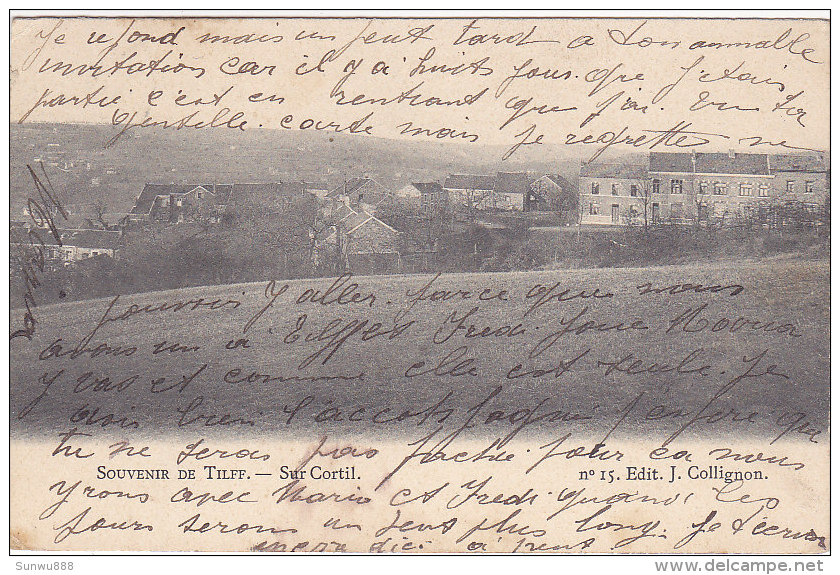 Je repond mais un peut tard a ton aimable
invitation car il y a huits jour que j'etais
partie c'est en rentrant que j'ai en ta
gentille carte mais je regrette ne
pouvoir y aller parce que nous
avons un a Fredi
y vas et comme elle est seule. Je
dois bien l'accot j'espere que
tu ne seras pas fachée pour ca nous
SOUVENIR DE TILFF. — Sur Cortil.
nº 15. Edit. J. Collignon.
yrons avec Mario et Fredi quand les
jours seron un peut plus long. Je t'écrirai
d'ici a peut
Sunwu888
delcampe.net